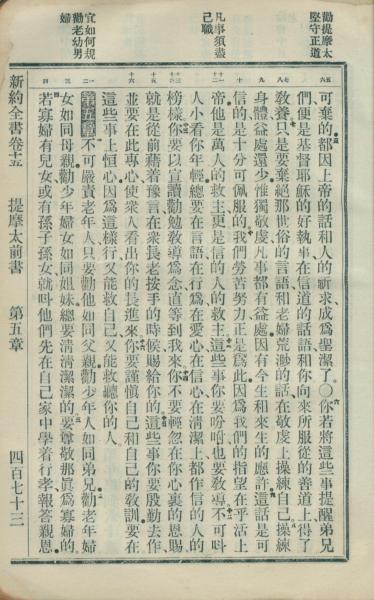 勸提摩太
堅守正道
凡事須盡
己職
宜如何規
勸老幼男
婦
可棄的都因上帝的話和人的祈求成爲聖潔了○你若將這些事提醒弟兄
們便是基督耶穌的好執事在信道的話語和你向來所服從的善道上得了
教養只是要棄絕那世俗的言語和老婦荒渺的話在敬虔上操練自己操練
身體益處還少惟獨敬虔凡事都有益處因有今生和來生的應許這話是可
信的是十分可佩服的我們勞苦努力正是爲此因爲我們的指望在乎活上
帝他是萬人的救主更是信的人的救主這些事你要吩咐也要教導不可叫
人小看你年輕總要在言語在行爲在愛心在信心在清潔上都作信的人的
榜樣你要以宣讀勸勉敎導爲念直等到我來你不要輕忽在你心裏的恩賜
就是從前藉着豫言在衆長老按手的時候賜給你的這些事你要殷勤去作
並要在此專心使衆人看出你的長進來你要謹慎自己和自己的敎訓要在
這些事上恒心因爲這樣行又能救自己又能救聽你的人
第五章 不可嚴責老年人只要勸他如同父親勸少年人如同弟兄勸老年婦
女如同母親勸少年婦女如同姐妹總要清清潔潔的要尊敬那眞爲寡婦的
若寡婦有兒女或有孫子孫女就叫他們先在自己家中學着行孝報答親恩
新約全書卷十五 提摩太前書 第五章 四百七十三